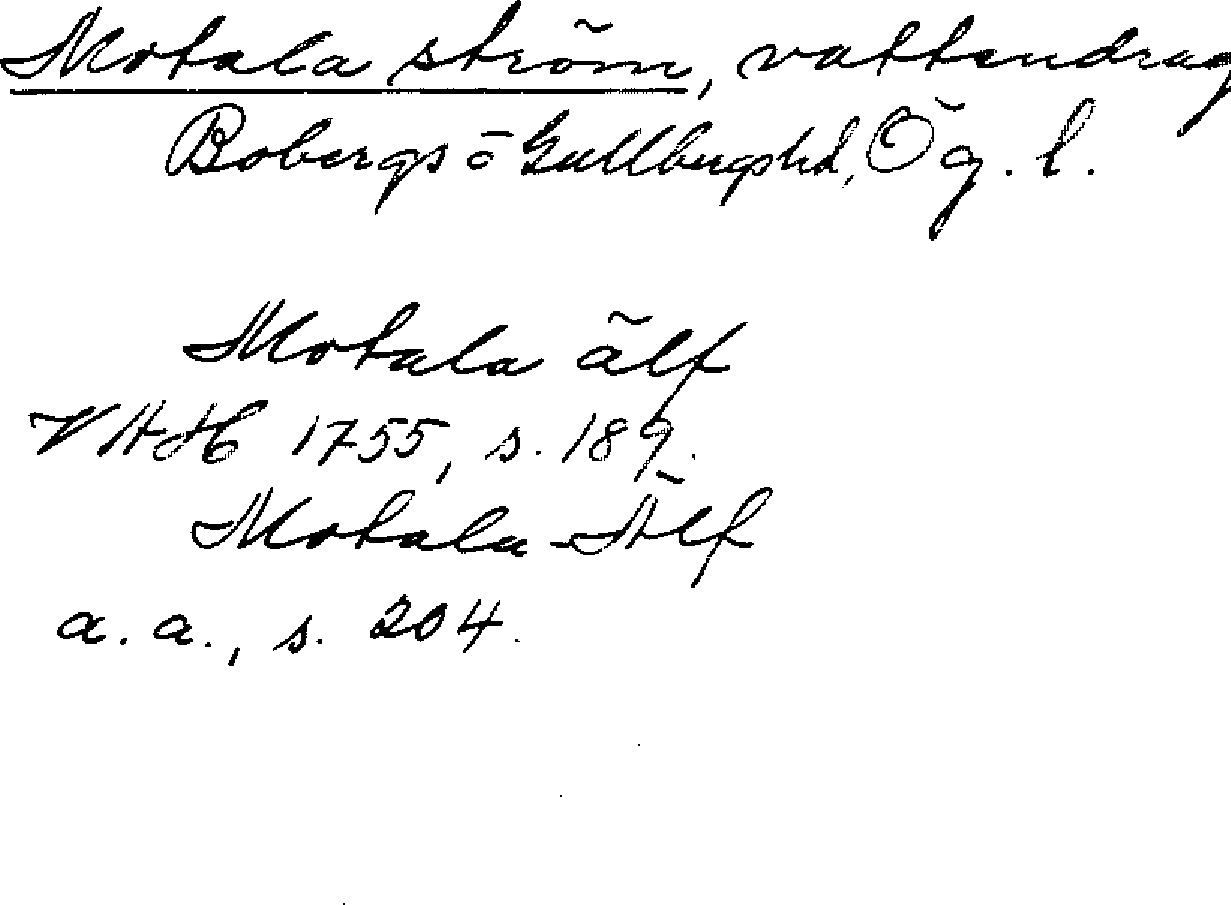 Motala ström, vattendrag
Bobergs o Gullbergs hd, Ög. l.
Motala älf
VAH 1755, s. 189.
Motala-Älf
a. a., s. 204.